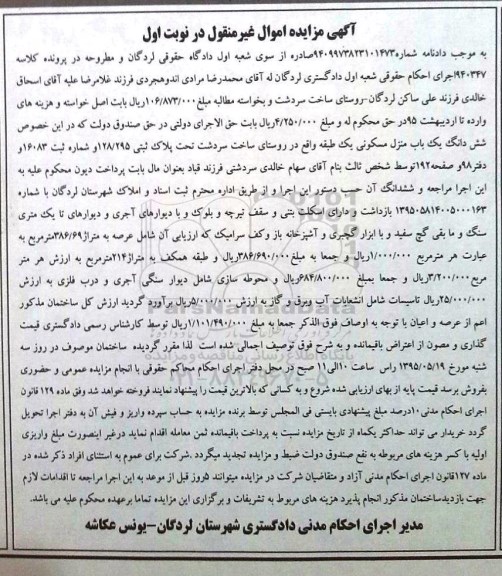 آگهی مزایده اموال غیرمنقول در نوبت اول
به موجب دادنامه شماره۹۴۰۹۹۷۳۸۲۳۱۰۱۴۷۳صادره از سوی شعبه اول دادگاه حقوقی لردگان و مطروحه در پرونده کلاسه
۹۴۰۳۴۷اجرای احکام حقوقی شعبه اول دادگستری لردگان له آقای محمدرضا مرادی اندوهجردی فرزند غلامرضا علیه آقای اسحاق
خالدی فرزند علی ساکن لردگان-روستای ساخت سردشت و بخواسته مطالبه مبلغ۱۰۶/۸۷۳/۰۰۰ریال بابت اصل خواسته و هزینه های
وارده تا اردیبهشت ۹۵در حق محکوم له و مبلغ ۴/۲۵۰/۰۰۰ریال بابت حق الاجرای دولتی در حق صندوق دولت که در این خصوص
شش دانگ یک باب منزل مسکونی یک طبقه واقع در روستای ساخت سردشت تحت پلاک ثبتی ۱۲۸/۲۹۵و شماره ثبت ۱۶۰۸۳و
دفتر۹۸و صفحه۱۹۲توسط شخص ثالث بنام آقای سهام خالدی سردشتی فرزند قیاد بعنوان مال بابت پرداخت دیون محکوم علیه به
این اجرا مراجعه و ششدانگ آن حسب دستور این اجرا و از طریق اداره محترم ثبت اسناد و املاک شهرستان لردگان با شماره
۱۳۹۵۰۵۸۱۴۰۰۵۰۰۰۱۶۳ بازداشت و دارای اسکلت بتنی و سقف تیرچه و بلوک و با دیوارهای آجری و دیوارهای تا یک متری
سنگ و ما بقی گچ سفید و با ابزار گچبری و آشپزخانه باز وکف سرامیک که ارزیابی آن شامل عرصه به متراژ۳۸۶/۶۹مترمربع به
عبارت هر مترمربع ۱/۰۰۰/۰۰۰ریال و جمعا به مبلغ۳۸۶/۶۹۰/۰۰۰ریال و طبقه همکف به متراژ۲۱۴مترمربع به ارزش هر متر
مربع۳/۲۰۰/۰۰۰ریال و جمعا بمبلغ ۶۸۴/۸۰۰/۰۰۰ریال و محوطه سازی شامل دیوار سنگی آجری و درب فلزی به ارزش
۲۵/۰۰۰/۰۰۰ریال تاسیسات شامل انشعابات آب وبرق و گاز به ارزش ۵/۰۰۰/۰۰۰ریال برآورد گردید ارزش کل ساختمان مذکور
اعم از عرصه و اعیان با توجه به اوصاف فوق الذکر جمعا به مبلغ ۱/۱۰۱/۴۹۰/۰۰۰ریال توسط کارشناس رسمی دادگستری قیمت
گذاری و مصون از اعتراض باقیمانده و به شرح فوق توصیف اجمالی شده است لذا مقرر گردیده ساختمان موصوف در روز سه
شنبه مورخ ۱۳۹۵/۰۵/۱۹ راس ساعت ۱۰الی۱۱ صبح در محل دفتر اجرای احکام محاکم حقوقی با انجام مزایده عمومی و حضوری
بفروش برسد قیمت پایه از بهای ارزیابی شده شروع و به کسانی که بالاترین قیمت را پیشنهاد نمایند فروخته خواهد شد وفق ماده ۱۲۹ قانون
اجرای احکام مدنی ۱۰درصد مبلغ پیشنهادی بایستی فی المجلس توسط برنده مزایده به حساب سپرده واریز و فیش آن به دفتر اجرا تحویل
گردد خریدار می تواند حداکثر یکماه از تاریخ مزایده نسبت به پرداخت باقیمانده ثمن معامله اقدام نماید درغیر اینصورت مبلغ واریزی
اولیه با کسر هزینه های مربوطه به نفع صندوق دولت ضبط و مزایده تجدید میگردد .شرکت برای عموم به استثنای افراد ذکر شده در
ماده ۱۲۷قانون اجرای احکام مدنی آزاد و متقاضیان شرکت در مزایده میتوانند ۵روز قبل از موعد به این اجرا مراجعه تا اقدامات لازم
جهت بازدیدساختمان مذکور انجام پذیرد هزینه های مربوط به تشریفات و برگزاری این مزایده تماما برعهده محکوم علیه می باشد.
مدیر اجرای احکام مدنی دادگستری شهرستان لردگان-یونس عکاشه